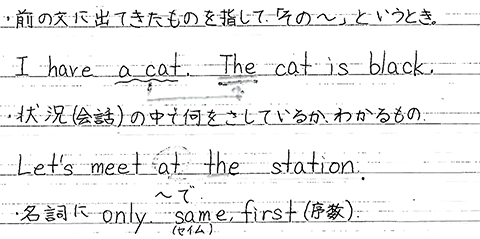 ・前の文に出てきたものを指して、「その〜」というとき。
I have a cat. The cat is black.
・状況(会話)の中で何をさしているか、わかるもの
Let's meet at the station.
〜で
・名詞に only, same, first (序数)
(セイム)